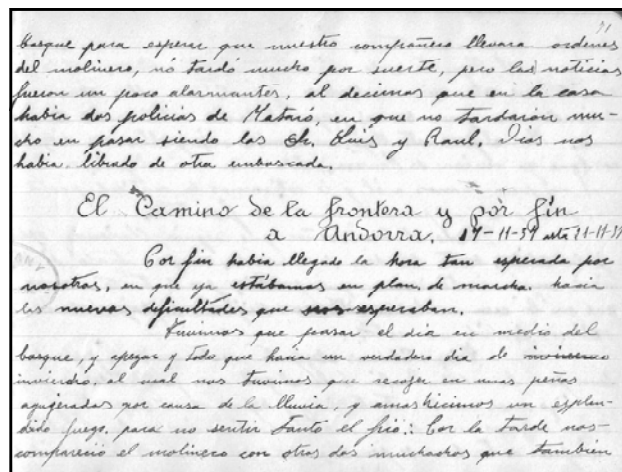 71
bosque para esperar que nuestro compañero llevara ordenes
del molinero, nó tardó mucho por suerte, pero las noticias
fueron un poco alarmantes, al decirnos que en la casa
habia dos policias de Mataró, en que no tardarón mu-
cho en pasar siendo los Sr. Luis y Raul. Dios nos
habia librado de otra emboscada.
El Camino de la frontera y por fin
a Andorra. 17-11-39 asta 21-11-39
Por fin habia llegado la hora tan esperada por
nosotros, en que ya estábamos en plan de marcha hacia
las nuevas dificultades que nos esperaban.
Tuvimos que pasar el dia en medio del
bosque, y apegar y todo que hacia un verdadero dia de
invierdro, al cual nos tuvimos que recojer en unas peñas
agugeradas por causa de la lluvia, y amos hicimos un esplen-
dido fuego, para no sentir tanto el frió: Por la tarde nos-
comparecio el molinero con otros dos muchachos que también